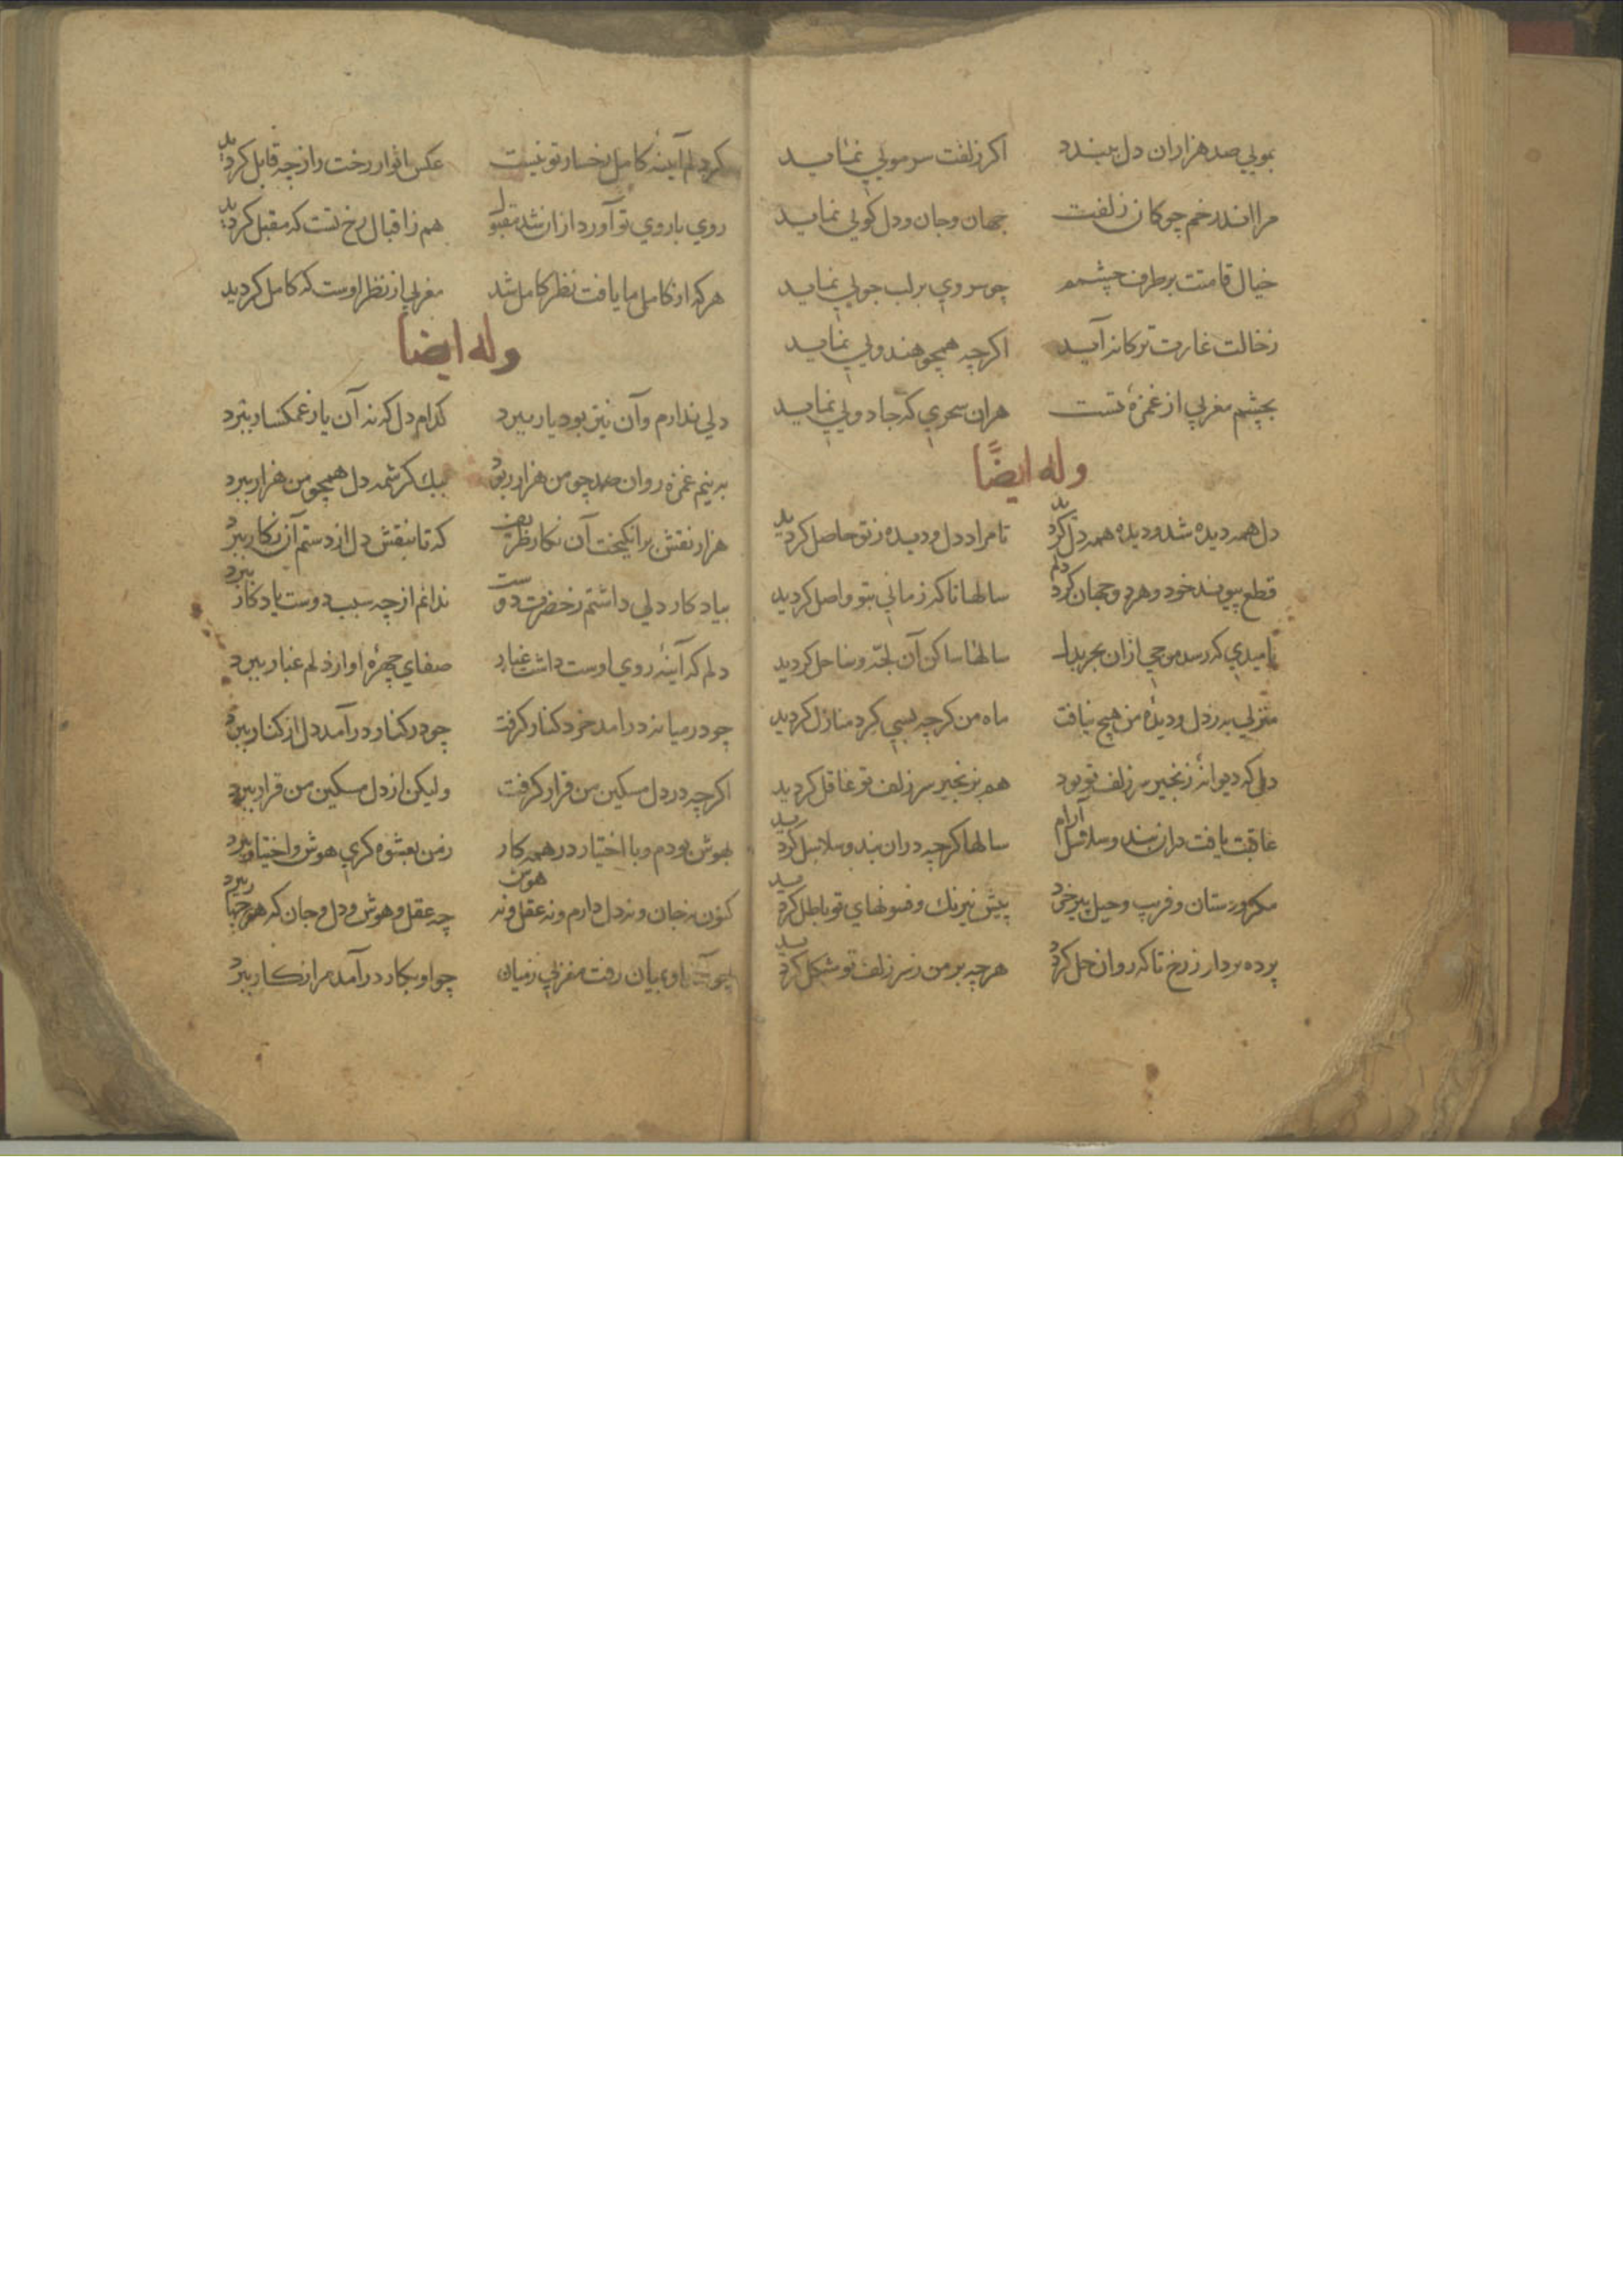 بمویی صد هزاران دل ببندد اکر زلفت سر مویی نماید
مرا اندر خم چوکان زلفت جهان و جان و دل کویی نماید
خیال قامتت بر طرف چشمم چو سروی بر لب جویی نماید
ز خالت غارت ترکانه آید اکرچه همچو هندویی نماید
بچشم مغربی از غمزهٔ تست هران سحری که جادویی نماید
وله ایضًا
دل همه دیده شد و دیده همه دل کردید تا مراد دل و دیده ز تو حاصل کردید
قطع پیوند خود و هر دو جهان کردم سالها تا که زمانی بتو واصل کردید
نامیدی که رسد موجی ازان بحر بدل سالها ساکن آن لجّه و ساحل کردید
منزلی به ز دل و دیدهٔ من هیچ نیافت ماه من کرچه بسی کرد منازل کردید
دلی که دیوانهٔ زنجیر سر زلف تو بود هم بزنجیر سر زلف تو عاقل کردید
عاقبت یافت دران بند و سلاسل آرام سالها کرچه دران بند و سلاسل کردید
مکر و دستان و فریب و حیل پیر خرد پیش نیرنک و فسونهای تو باطل کردید
پرده بردار ز رخ تا که روان حل کردد هرچه بر من ز سر زلف تو مشکل کردید
کر دلم آینهٔ کامل رخسار تو نیست عکس انوار رخت را ز چه قابل کردید
روی با روی تو آورد ازان شد مقبول هم ز اقبال رخ تست که مقبل کردید
هر که او کامل ما یافت نظر کامل شد مغربی از نظر اوست که کامل کردید
وله ایضا
دلی ندارم و آن نیز بود یار ببرد کدام دل که نه آن یار غمکسار ببرد
به نیم غمزه روان صد چو من هزار ربود بیک کرشمه دل همچو من هزار ببرد
هزار نقش برانکیخت آن نکار ظریف که تا بنقش دل از دستم آن نکار ببرد
بیادکار دلی داشتم ز حضرت دوست ندانم از چه سبب دوست یادکار ببرد
دلم که آینهٔ روی اوست داشت غبار صفای چهرهٔ او از دلم غبار ببرد
چو در میانه درامد خرد کنار کرفت چو در کنار درآمد دل از کنار ببرد
اکرچه در دل مسکین من قرار کرفت ولیکن از دل مسکین من قرار ببرد
بهوش بودم و با اختیار در همه کار ز من بعشوه کری هوش و اختیار ببرد
کنون نه جان و نه دل دارم و نه عقل و نه هوش چه عقل و هوش و دل و جان که هر چهار ببرد
چو او بمیان رفت مغربی ز میان چو او بکار درآمد مرا ز کار ببرد